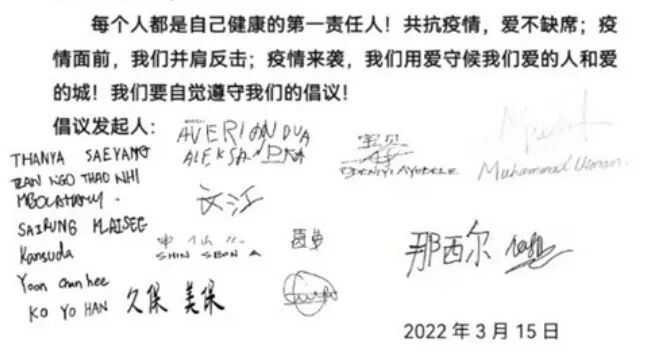 每个人都是自己健康的第一责任人！共抗疫情，爱不缺席；疫
情面前，我们并肩反击；疫情来袭，我们用爱守候我们爱的人和爱
的城！我们要自觉遵守我们的倡议！
倡议发起人：
AVERIANOVA
ALEKSANDRA
宝贝
Muhammad Usman.
THANYA SAEYANG
TRAN NGO THAO NHI
文江
SAIRUNG
Kansuda
SHIN SEON A
那西尔
Yoon chun hee
KO YO HAN
久保 美保
2022 年 3 月 15 日